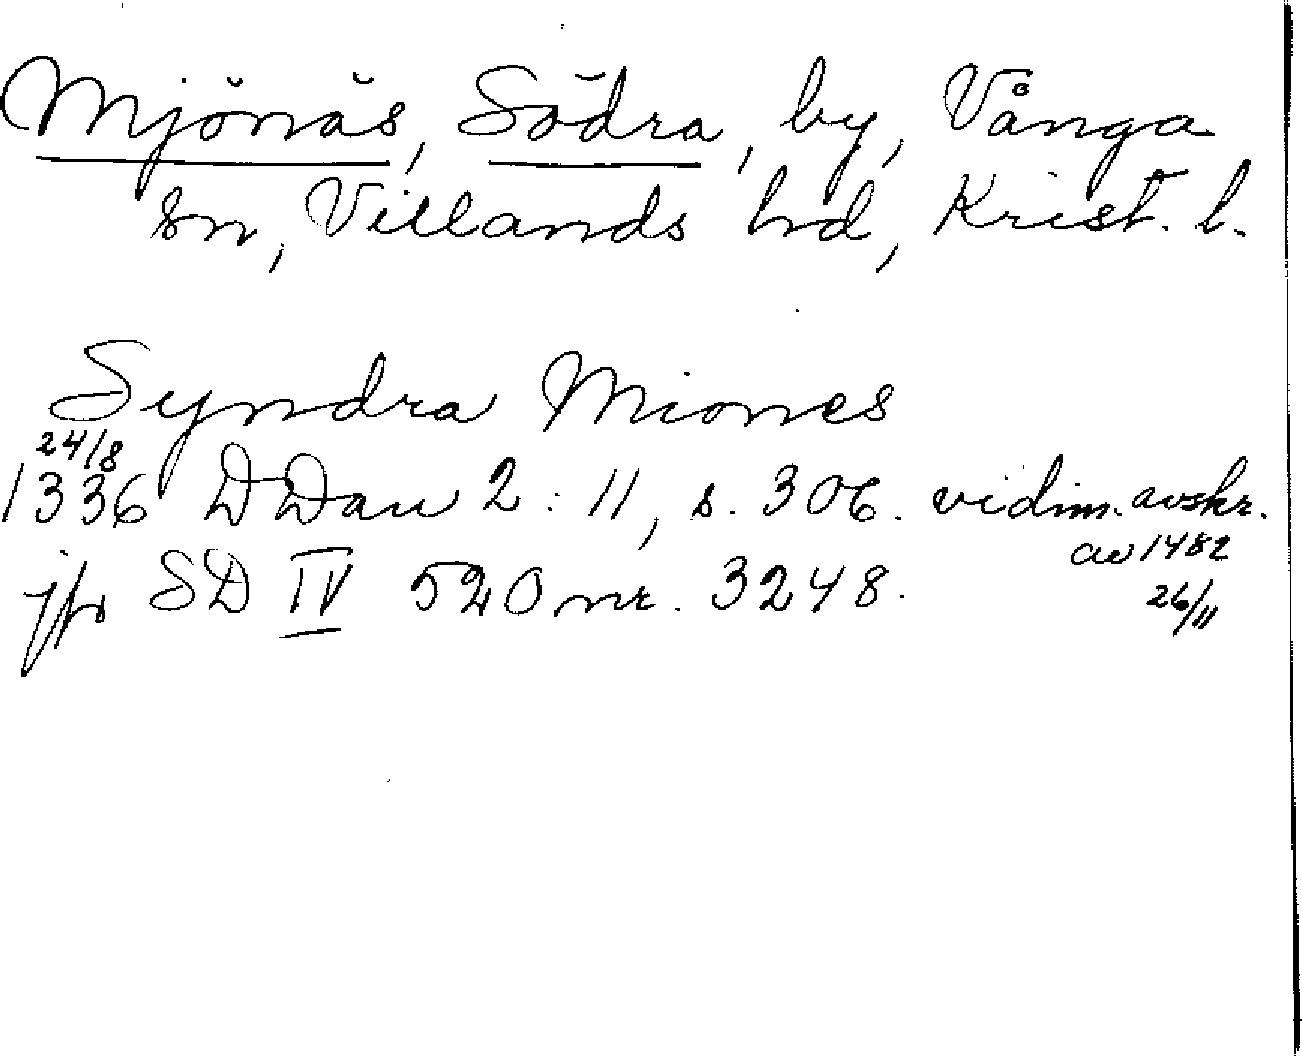 Mjönäs, Södra, by, Vånga
sn, Villands hd, Krist. l.
Syndra Miones
24/8
1336 DDan 2:11, s. 306. vidim. avskr.
av 1482
jfr SD IV 520 nr. 3248.
26/11